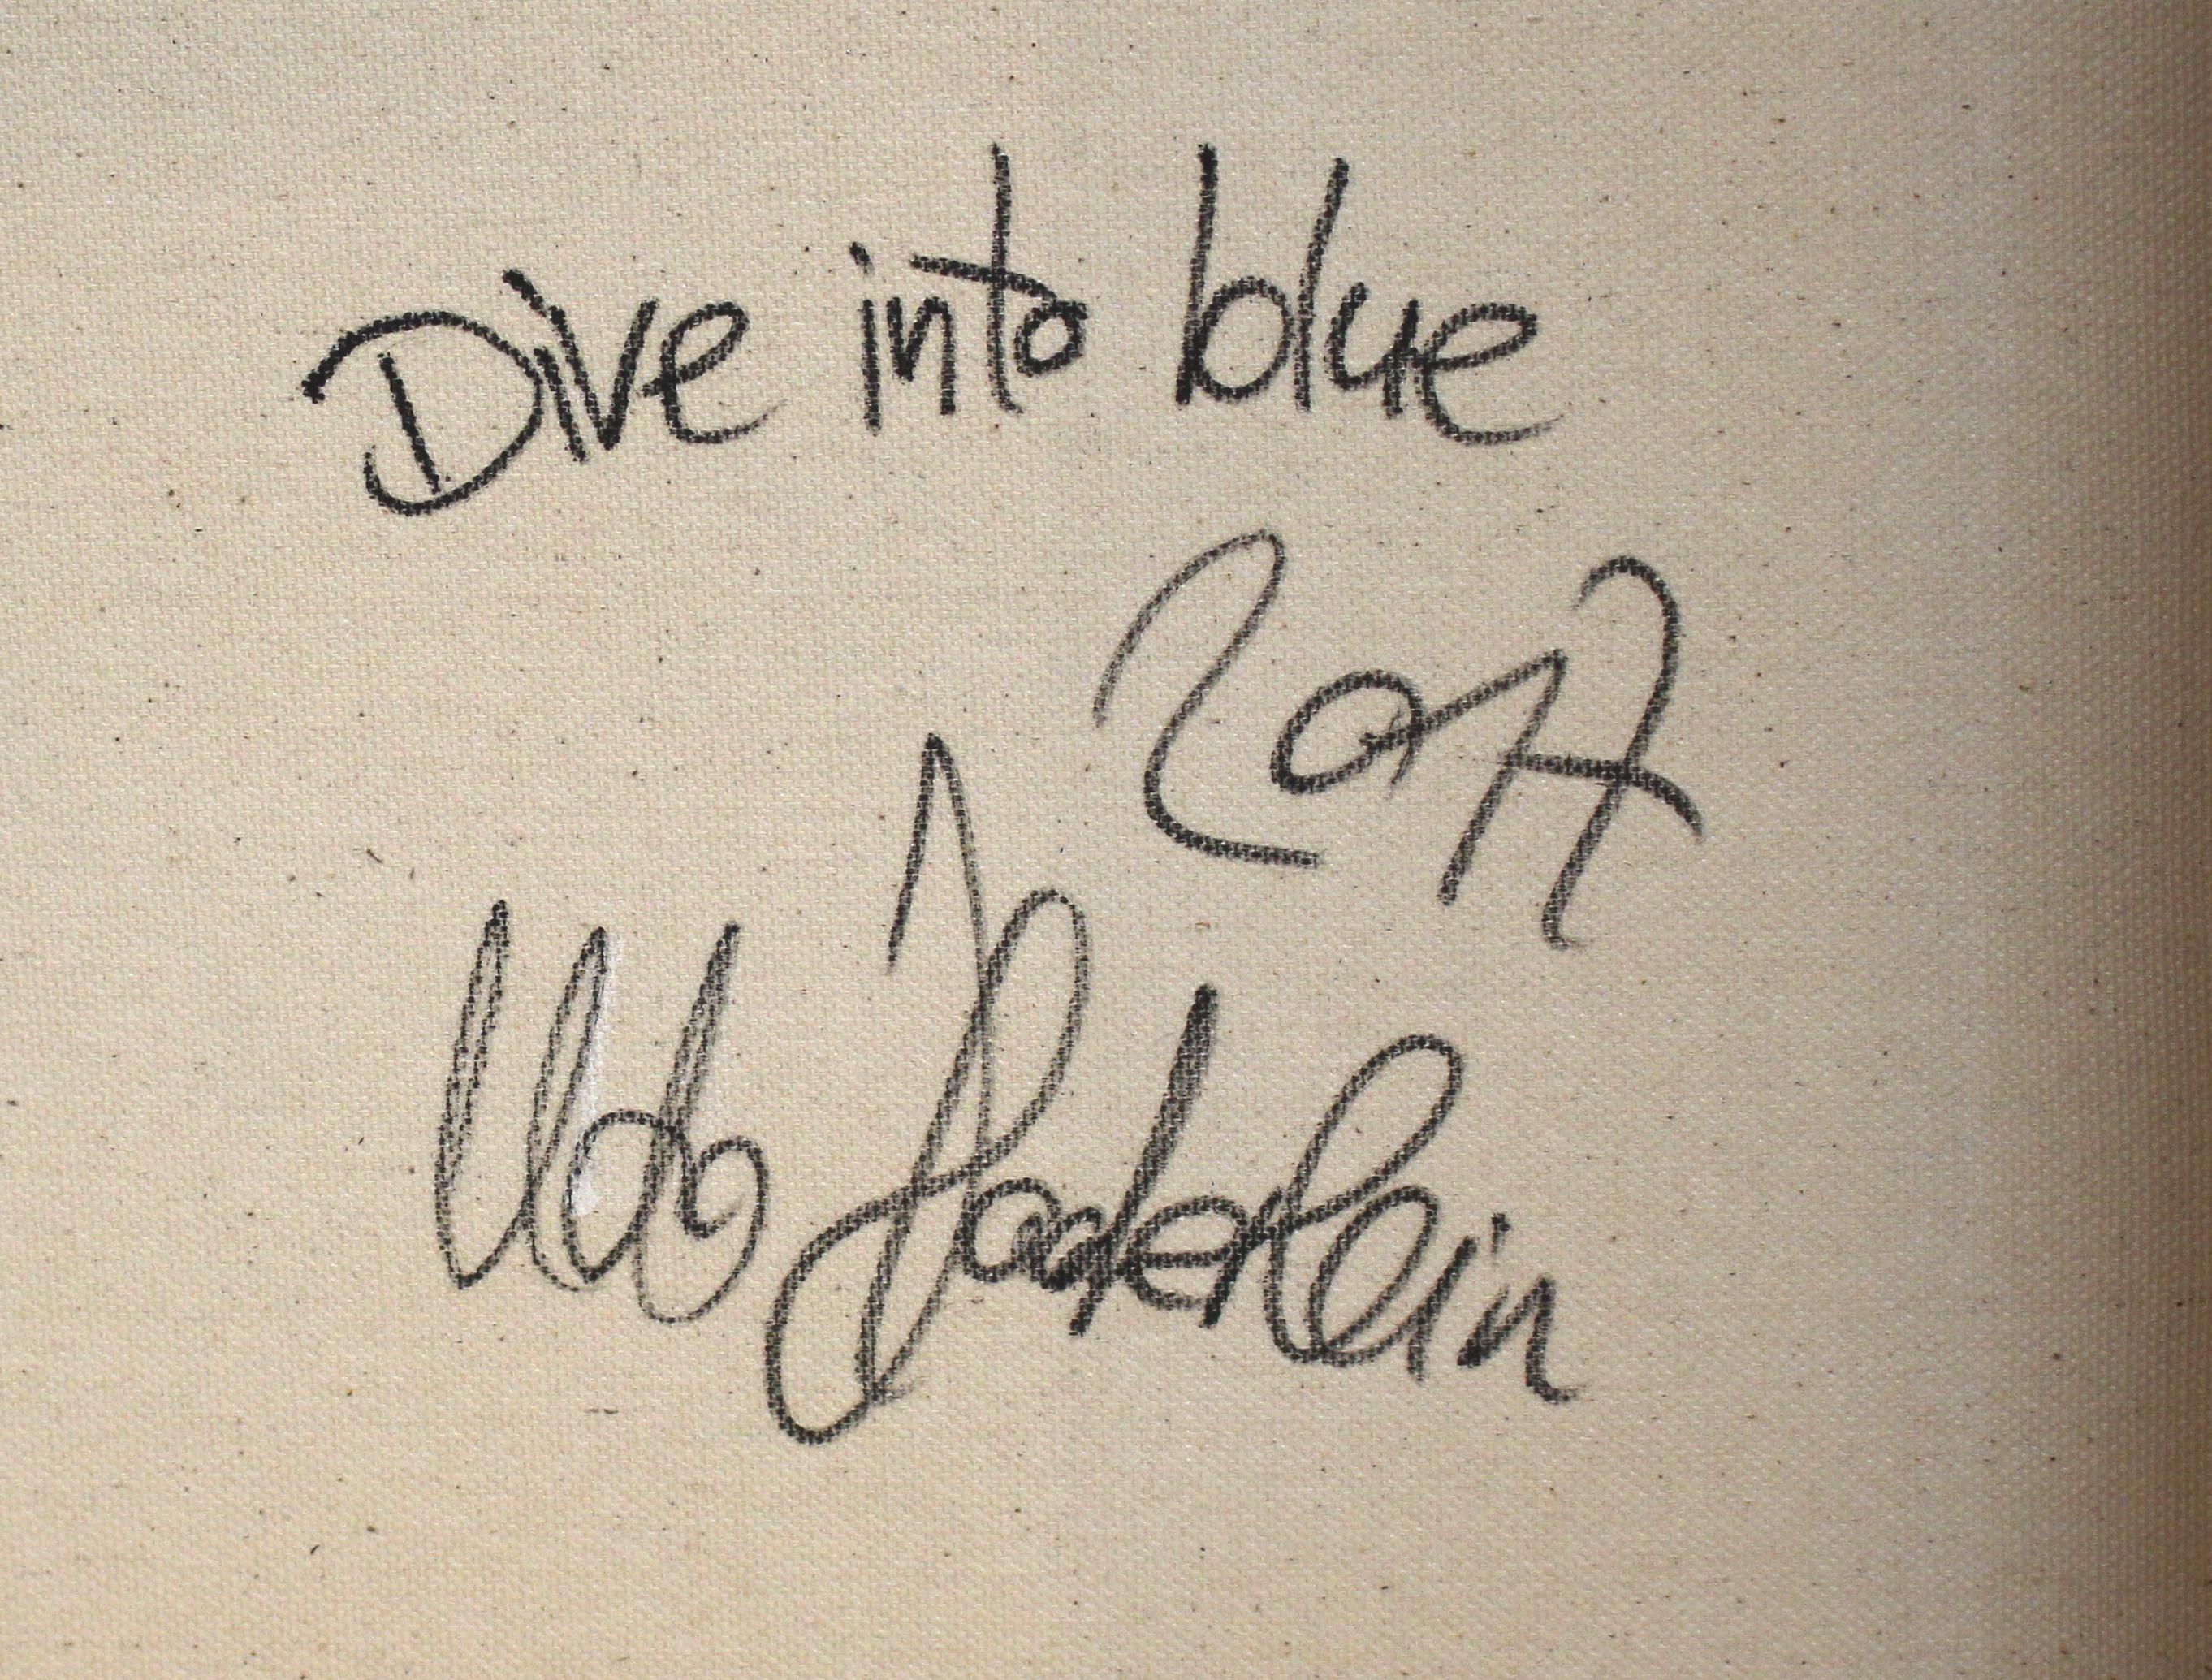 Dive into blue
2017
Udo Haderlein